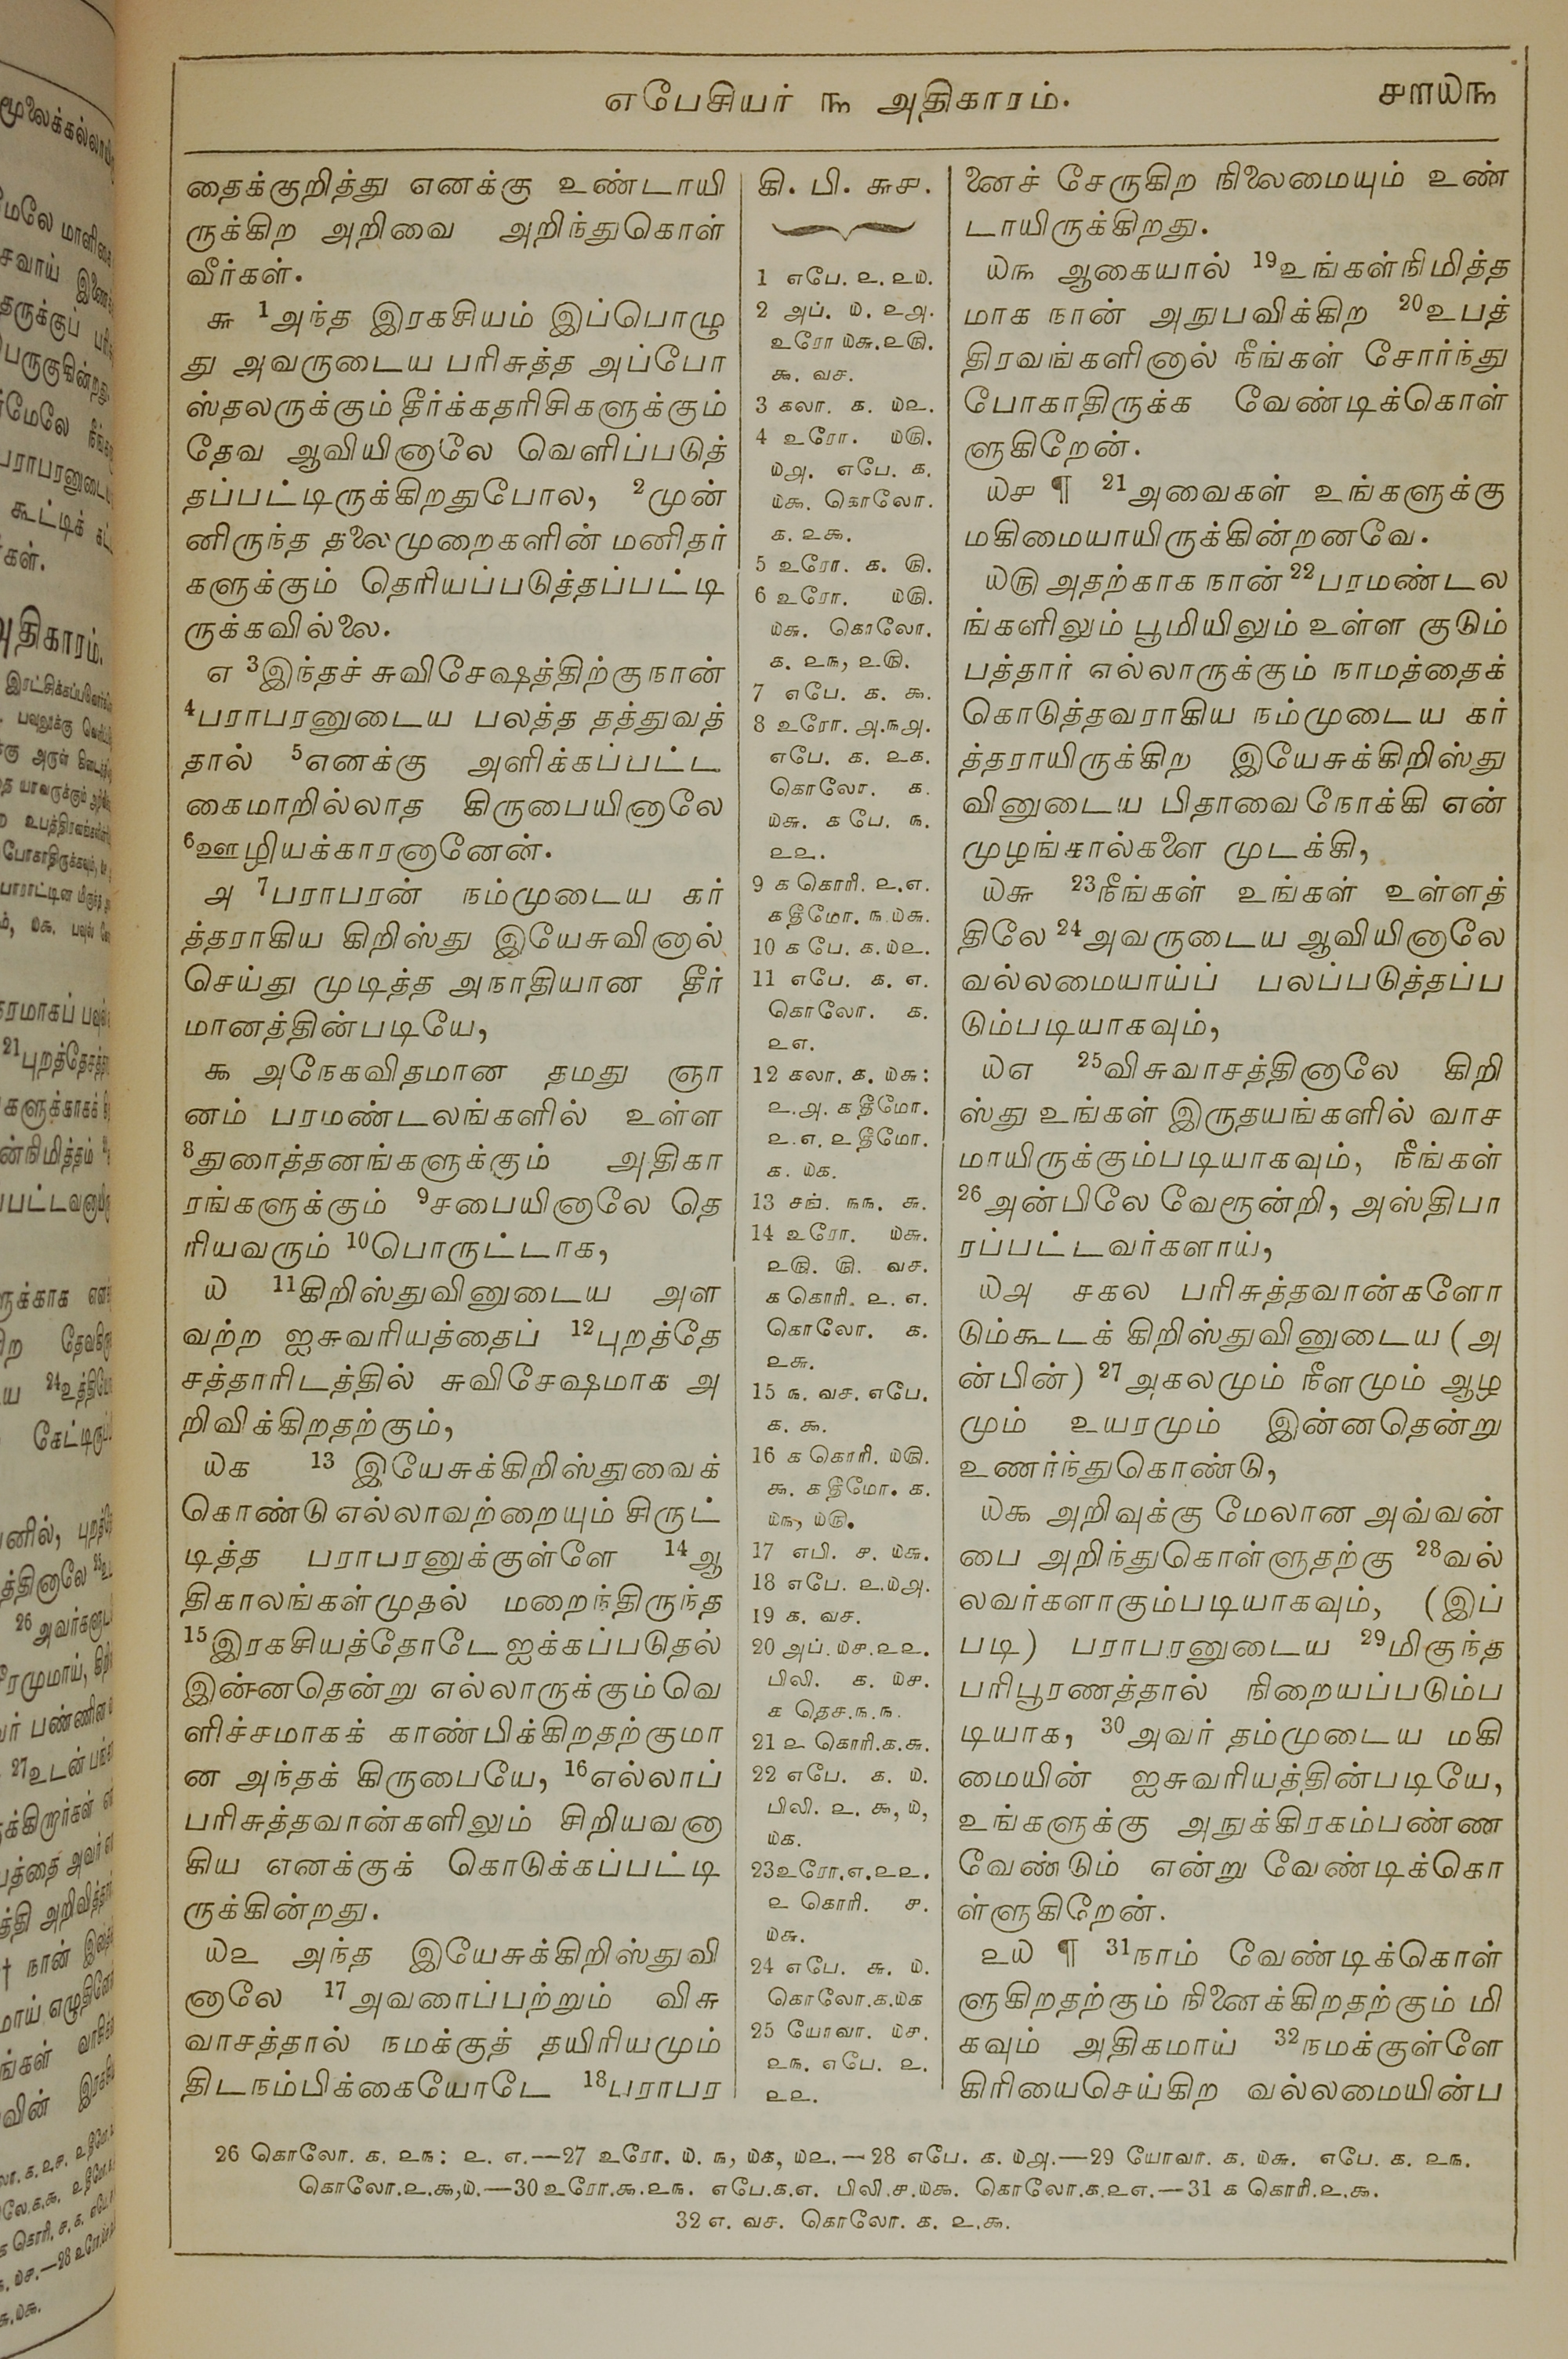 எபேசியர் ௩ அதிகாரம்.
௪௱௰௩
தைக்குறித்து எனக்கு உண்டாயி
ருக்கிற அறிவை அறிந்துகொள்
வீர்கள்.
௬ 1அந்த இரகசியம் இப்பொழு
து அவருடைய பரிசுத்த அப்போ
ஸ்தலருக்கும் தீர்க்கதரிசிகளுக்கும்
தேவ ஆவியினாலே வெளிப்படுத்
தப்பட்டிருக்கிறதுபோல, 2முன்
னிருந்த தலைமுறைகளின் மனிதர்
களுக்கும் தெரியப்படுத்தப்பட்டி
ருக்கவில்லை.
௭ 3இந்தச் சுவிசேஷத்திற்கு நான்
4பராபரனுடைய பலத்த தத்துவத்
தால் 5எனக்கு அளிக்கப்பட்ட
கைமாறில்லாத கிருபையினாலே
6ஊழியக்காரனானேன்.
௮ 7பராபரன் நம்முடைய கர்
த்தராகிய கிறிஸ்து இயேசுவினால்
செய்து முடித்த அநாதியான தீர்
மானத்தின்படியே,
௯ அநேகவிதமான தமது ஞா
னம் பரமண்டலங்களில் உள்ள
8துரைத்தனங்களுக்கும் அதிகா
ரங்களுக்கும் 9சபையினாலே தெ
ரியவரும் 10பொருட்டாக,
௰ 11கிறிஸ்துவினுடைய அள
வற்ற ஐசுவரியத்தைப் 12புறத்தே
சத்தாரிடத்தில் சுவிசேஷமாக அ
றிவிக்கிறதற்கும்,
௰௧ 13 இயேசுக்கிறிஸ்துவைக்
கொண்டு எல்லாவற்றையும் சிருட்
டித்த பராபரனுக்குள்ளே 14ஆ
திகாலங்கள்முதல் மறைந்திருந்த
15இரகசியத்தோடே ஐக்கப்படுதல்
இன்னதென்று எல்லாருக்கும் வெ
ளிச்சமாகக் காண்பிக்கிறதற்குமா
ன அந்தக் கிருபையே, 16எல்லாப்
பரிசுத்தவான்களிலும் சிறியவனா
கிய எனக்குக் கொடுக்கப்பட்டி
ருக்கின்றது.
௰௨ அந்த இயேசுக்கிறிஸ்துவி
னாலே 17அவரைப்பற்றும் விசு
வாசத்தால் நமக்குத் தயிரியமும்
திடநம்பிக்கையோடே 18பராபர
கி. பி. ௬௪.
1 எபே. ௨. ௨௰.
2 அப். ௰. ௨௮.
உரோ ௰௬.௨௫.
௯. வச.
3 கலா. ௧. ௰௨.
4 உரோ. ௰௫.
௰௮. எபே. ௧.
௰௯. கொலோ.
௧. ௨௯.
5 உரோ. ௧. ௫.
6 உரோ. ௰௫.
௰௬. கொலோ.
௧. ௨௩, ௨௫.
7 எபே. ௧. ௯.
8 உரோ. ௮.௩௮.
எபே. ௧. ௨௧.
கொலோ. ௧.
௰௬. ௧ பே. ௩.
௨௨.
9 ௧ கொரி. ௨.௭.
௧ தீமோ. ௩.௰௬.
10 ௧ பே. ௧.௰௨.
11 எபே. ௧. ௭.
கொலோ. ௧.
௨௭.
12 கலா. ௧. ௰௬:
௨.௮. ௧ தீமோ.
௨.௭. ௨ தீமோ.
௧. ௰௧.
13 சங். ௩௩. ௬.
14 உரோ. ௰௬.
௨௫. ௫. வச.
௧ கொரி. ௨. ௭.
கொலோ. ௧.
௨௬.
15 ௩. வச. எபே.
௧. ௯.
16 ௧ கொரி. ௰௫.
௯. ௧ தீமோ. ௧.
௰௩, ௰௫.
17 எபி. ௪. ௰௬.
18 எபே. ௨.௰௮.
19 ௧. வச.
20 அப். ௰௪.௨௨.
பிலி. ௧. ௰௪.
௧ தெச.௩.௩.
21 ௨ கொரி.௧.௬.
22 எபே. ௧. ௰.
பிலி. ௨. ௯, ௰,
௰௧.
23உரோ.௭.௨௨.
௨ கொரி. ௪.
௰௬.
24 எபே. ௬. ௰.
கொலோ.௧.௰௧
25 யோவா. ௰௪.
௨௩. எபே. ௨.
௨௨.
னைச் சேருகிற நிலைமையும் உண்
டாயிருக்கிறது.
௰௩ ஆகையால் 19உங்கள்நிமித்த
மாக நான் அநுபவிக்கிற 20உபத்
திரவங்களினால் நீங்கள் சோர்ந்து
போகாதிருக்க வேண்டிக்கொள்
ளுகிறேன்.
௰௪ ¶ 21அவைகள் உங்களுக்கு
மகிமையாயிருக்கின்றனவே.
௰௫ அதற்காக நான் 22பரமண்டல
ங்களிலும் பூமியிலும் உள்ள குடும்
பத்தார் எல்லாருக்கும் நாமத்தைக்
கொடுத்தவராகிய நம்முடைய கர்
த்தராயிருக்கிற இயேசுக்கிறிஸ்து
வினுடைய பிதாவை நோக்கி என்
முழங்கால்களை முடக்கி,
௰௬ 23நீங்கள் உங்கள் உள்ளத்
திலே 24அவருடைய ஆவியினாலே
வல்லமையாய்ப் பலப்படுத்தப்ப
டும்படியாகவும்,
௰௭ 25விசுவாசத்தினாலே கிறி
ஸ்து உங்கள் இருதயங்களில் வாச
மாயிருக்கும்படியாகவும், நீங்கள்
26அன்பிலே வேரூன்றி, அஸ்திபா
ரப்பட்டவர்களாய்,
௰௮ சகல பரிசுத்தவான்களோ
டும்கூடக் கிறிஸ்துவினுடைய (அ
ன்பின்) 27அகலமும் நீளமும் ஆழ
மும் உயரமும் இன்னதென்று
உணர்ந்துகொண்டு,
௰௯ அறிவுக்கு மேலான அவ்வன்
பை அறிந்துகொள்ளுதற்கு 28வல்
லவர்களாகும்படியாகவும், (இப்
படி) பராபரனுடைய 29மிகுந்த
பரிபூரணத்தால் நிறையப்படும்ப
டியாக, 30அவர் தம்முடைய மகி
மையின் ஐசுவரியத்தின்படியே,
உங்களுக்கு அநுக்கிரகம்பண்ண
வேண்டும் என்று வேண்டிக்கொ
ள்ளுகிறேன்.
௨௰ ¶ 31நாம் வேண்டிக்கொள்
ளுகிறதற்கும் நினைக்கிறதற்கும் மி
கவும் அதிகமாய் 32நமக்குள்ளே
கிரியைசெய்கிற வல்லமையின்ப
26 கொலோ. ௧. ௨௩: ௨. ௭.—27 உரோ. ௰. ௩, ௰௧, ௰௨.—28 எபே. ௧. ௰௮.—29 யோவா. ௧. ௰௬. எபே. ௧. ௨௩.
கொலோ.௨.௯,௰.—30 உரோ.௯.௨௩. எபே.௧.௭. பிலி.௪.௰௯. கொலோ.௧.௨௭.—31 ௧ கொரி.௨.௯.
32 ௭. வச. கொலோ. ௧. ௨.௯.